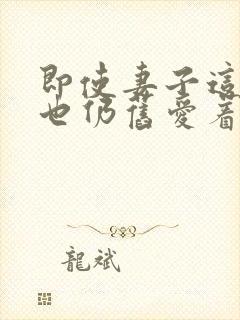 即使妻子這
也仍舊愛着
龍斌